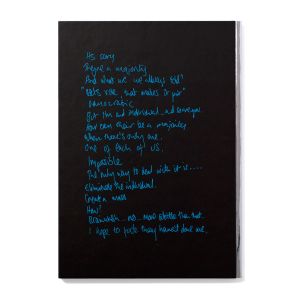 Its scary
They're a majority
And what are we always told?
"Let's vote, that makes it fair"
Democratic
But I'm and individual.. and so are you
How can their be a majority
When there's only one..
One of each of us.
Impossible
The only way to deal with it is.....
eliminate the individual.
Create a mass
How?
Brainwash... no.. more subtle than that.
I hope to fuck they haven't done me.